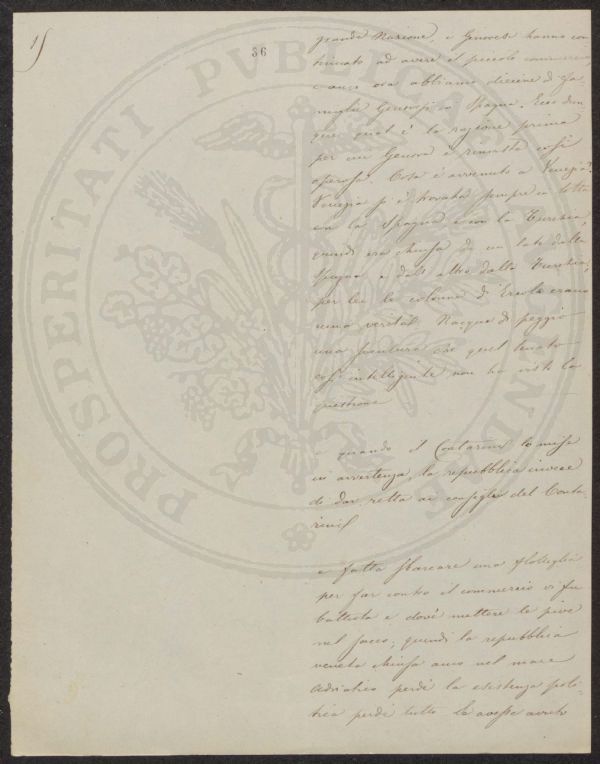 15
36
grande Nazione, e Genovesi hanno con
tinuato ad avere il piccolo commercio,
e anco ora abbiamo diecine di fa-
miglie Genovesi in Spagna. Ecco dun
que qual'è la ragione prima
per cui Genova è rimasta così
operosa. Cosa è avvenuto a Venezia?
Venezia si è trovata sempre in lotta
con la Spagna e con la Turchia,
quindi era chiusa di un lato dalla
Spagna e dall'altro dalla Turchia;
per lei le colonne d'Ercole erano
una verità. Nacque di peggio
una che quel Senato
così intelligente non ha visto la
questione
e quando il Contarini lo mise
in avvertenza, la repubblica invece
di dar retta ai consigli del Conta-
rini
e fatta sbarcare una flottiglia
per far contro il commercio vi fu
battuta e dovè mettere le pive
nel sacco, quindi la repubblica
veneta chiusa anco nel mare
Adriatico perdè la esistenza poli-
tica perdè tutto. Se avesse avuto
PROSPERITATI PVBLICAE